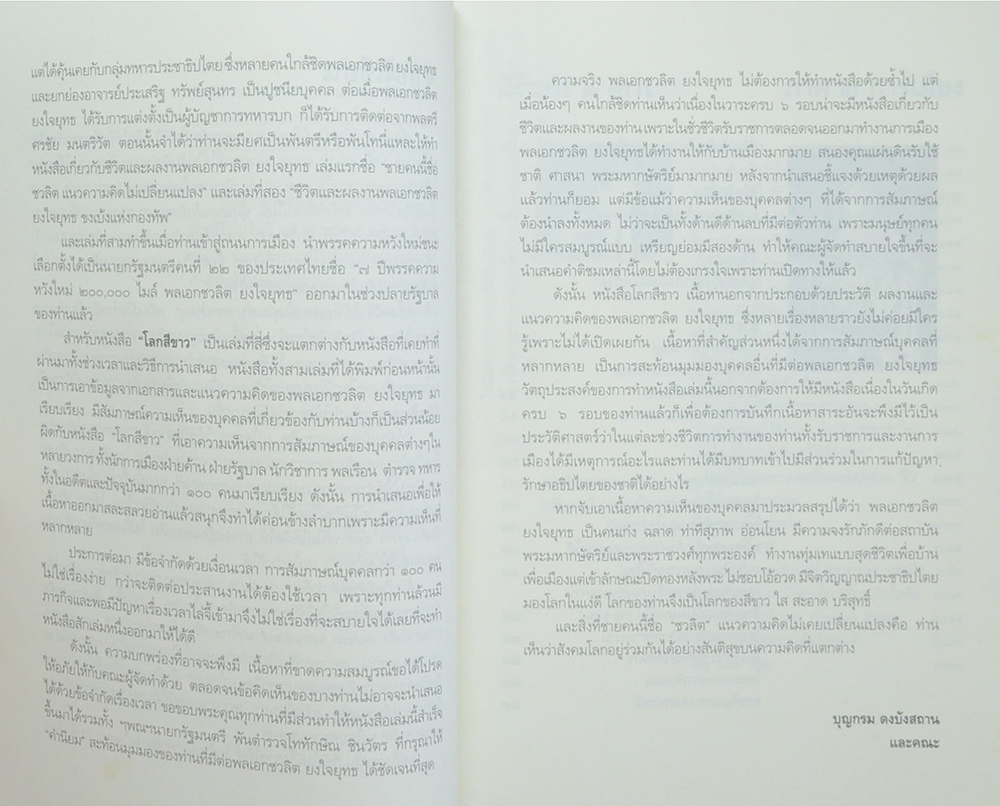 แต่ได้คุ้นเคยกับกลุ่มทหารประชาธิปไตย ซึ่งหลายคนใกล้ชิดพลเอกชวลิต ยงใจยุทธ
และยกย่องอาจารย์ประเสริฐ ทรัพย์สุนทร เป็นปูชนียบุคคล ต่อเมื่อพลเอกชวลิต
ยงใจยุทธ ได้รับการแต่งตั้งเป็นผู้บัญชาการทหารบก ก็ได้รับการติดต่อจากพลตรี
ศรชัย มนตริวัต ตอนนั้นจำได้ว่าท่านจะมียศเป็นพันตรีหรือพันโทนี่แหละให้ทำ
หนังสือเกี่ยวกับชีวิตและผลงานพลเอกชวลิต ยงใจยุทธ เล่มแรกชื่อ “ชายคนนี้ชื่อ
ชวลิต แนวความคิดไม่เปลี่ยนแปลง” และเล่มที่สอง “ชีวิตและผลงานพลเอกชวลิต
ยงใจยุทธ ขงเบ้งแห่งกองทัพ”
และเล่มที่สามทำขึ้นเมื่อท่านเข้าสู่ถนนการเมือง นำพรรคความหวังใหม่ชนะ
เลือกตั้งได้เป็นนายกรัฐมนตรีคนที่ ๒๒ ของประเทศไทยชื่อ “๗ ปีพรรคความ
หวังใหม่ ๒๐๐,๐๐๐ ไมล์ พลเอกชวลิต ยงใจยุทธ” ออกมาในช่วงปลายรัฐบาล
ของท่านแล้ว
สำหรับหนังสือ “โลกสีขาว” เป็นเล่มที่สี่ซึ่งจะแตกต่างกับหนังสือที่เคยทำที่
ผ่านมาทั้งช่วงเวลาและวิธีการนำเสนอ หนังสือทั้งสามเล่มที่ได้พิมพ์ก่อนหน้านั้น
เป็นการเอาข้อมูลจากเอกสารและแนวความคิดของพลเอกชวลิต ยงใจยุทธ มา
เรียบเรียง มีสัมภาษณ์ความเห็นของบุคคลที่เกี่ยวข้องกับท่านบ้างก็เป็นส่วนน้อย
ผิดกับหนังสือ “โลกสีขาว” ที่เอาความเห็นจากการสัมภาษณ์ของบุคคลต่างๆใน
หลายวงการ ทั้งนักการเมืองฝ่ายค้าน ฝ่ายรัฐบาล นักวิชาการ พลเรือน ตำรวจ ทหาร
ทั้งในอดีตและปัจจุบันมากกว่า ๑๐๐ คนมาเรียบเรียง ดังนั้น การนำเสนอเพื่อให้
เนื้อหาออกมาสละสลวยอ่านแล้วสนุกจึงทำได้ค่อนข้างลำบากเพราะมีความเห็นที่
หลากหลาย
ประการต่อมา มีข้อจำกัดด้วยเงื่อนเวลา การสัมภาษณ์บุคคลกว่า ๑๐๐ คน
ไม่ใช่เรื่องง่าย กว่าจะติดต่อประสานงานได้ต้องใช้เวลา เพราะทุกท่านล้วนมี
ภารกิจและพอมีปัญหาเรื่องเวลาไล่จี้เข้ามาจึงไม่ใช่เรื่องที่จะสบายใจได้เลยที่จะทำ
หนังสือสักเล่มหนึ่งออกมาให้ได้ดี
ดังนั้น ความบกพร่องที่อาจจะพึงมี เนื้อหาที่ขาดความสมบูรณ์ขอได้โปรด
ให้อภัยให้กับคณะผู้จัดทำด้วย ตลอดจนข้อคิดเห็นของบางท่านไม่อาจจะนำเสนอ
ได้ด้วยข้อจำกัดเรื่องเวลา ขอขอบพระคุณทุกท่านที่มีส่วนทำให้หนังสือเล่มนี้สำเร็จ
ขึ้นมาได้รวมทั้ง ฯพณฯนายกรัฐมนตรี พันตำรวจโททักษิณ ชินวัตร ที่กรุณาให้
“คำนิยม” สะท้อนมุมมองของท่านที่มีต่อพลเอกชวลิต ยงใจยุทธ ได้ชัดเจนที่สุด
ความจริง พลเอกชวลิต ยงใจยุทธ ไม่ต้องการให้ทำหนังสือด้วยซ้ำไป แต่
เมื่อน้องๆ คนใกล้ชิดท่านเห็นว่าเนื่องในวาระครบ ๖ รอบน่าจะมีหนังสือเกี่ยวกับ
ชีวิตและผลงานของท่าน เพราะในชั่วชีวิตรับราชการตลอดจนออกมาทำงานการเมือง
พลเอกชวลิต ยงใจยุทธได้ทำงานให้กับบ้านเมืองมากมาย สนองคุณแผ่นดินรับใช้
ชาติ ศาสนา พระมหากษัตริย์มามากมาย หลังจากนำเสนอชี้แจงด้วยเหตุด้วยผล
แล้วท่านก็ยอม แต่มีข้อแม้ว่าความเห็นของบุคคลต่างๆ ที่ได้จากการสัมภาษณ์
ต้องนำลงทั้งหมด ไม่ว่าจะเป็นทั้งด้านดีด้านลบที่มีต่อตัวท่าน เพราะมนุษย์ทุกคน
ไม่มีใครสมบูรณ์แบบ เหรียญย่อมมีสองด้าน ทำให้คณะผู้จัดทำสบายใจขึ้นที่จะ
นำเสนอคำติชมเหล่านี้โดยไม่ต้องเกรงใจเพราะท่านเปิดทางให้แล้ว
ดังนั้น หนังสือโลกสีขาว เนื้อหานอกจากประกอบด้วยประวัติ ผลงานและ
แนวความคิดของพลเอกชวลิต ยงใจยุทธ ซึ่งหลายเรื่องหลายราวยังไม่ค่อยมีใคร
รู้เพราะไม่ได้เปิดเผยกัน เนื้อหาที่สำคัญส่วนหนึ่งได้จากการสัมภาษณ์บุคคลที่
หลากหลาย เป็นการสะท้อนมุมมองของบุคคลอื่นที่มีต่อพลเอกชวลิต ยงใจยุทธ
วัตถุประสงค์ของการทำหนังสือเล่มนี้นอกจากต้องการให้มีหนังสือเนื่องในวันเกิด
ครบ ๖ รอบของท่านแล้วก็เพื่อต้องการบันทึกเนื้อหาสาระอันจะพึงมีไว้เป็น
ประวัติศาสตร์ว่าในแต่ละช่วงชีวิตการทำงานของท่านทั้งรับราชการและงานการ
เมืองได้มีเหตุการณ์อะไรและท่านได้มีบทบาทเข้าไปมีส่วนร่วมในการแก้ปัญหา
รักษาอธิปไตยของชาติได้อย่างไร
หากจับเอาเนื้อหาความเห็นของบุคคลมาประมวลสรุปได้ว่า พลเอกชวลิต
ยงใจยุทธ เป็นคนเก่ง ฉลาด ท่าทีสุภาพ อ่อนโยน มีความจงรักภักดีต่อสถาบัน
พระมหากษัตริย์และพระราชวงศ์ทุกพระองค์ ทำงานทุ่มเทแบบสุดชีวิตเพื่อบ้าน
เพื่อเมืองแต่เข้าลักษณะปิดทองหลังพระ ไม่ชอบโอ้อวด มีจิตวิญญาณประชาธิปไตย
มองโลกในแง่ดี โลกของท่านจึงเป็นโลกของสีขาว ใส สะอาด บริสุทธิ์
และสิ่งที่ชายคนนี้ชื่อ “ชวลิต” แนวความคิดไม่เคยเปลี่ยนแปลงคือ ท่าน
เห็นว่าสังคมโลกอยู่ร่วมกันได้อย่างสันติสุขบนความคิดที่แตกต่าง
บุญกรม ดงบังสถาน
และคณะ